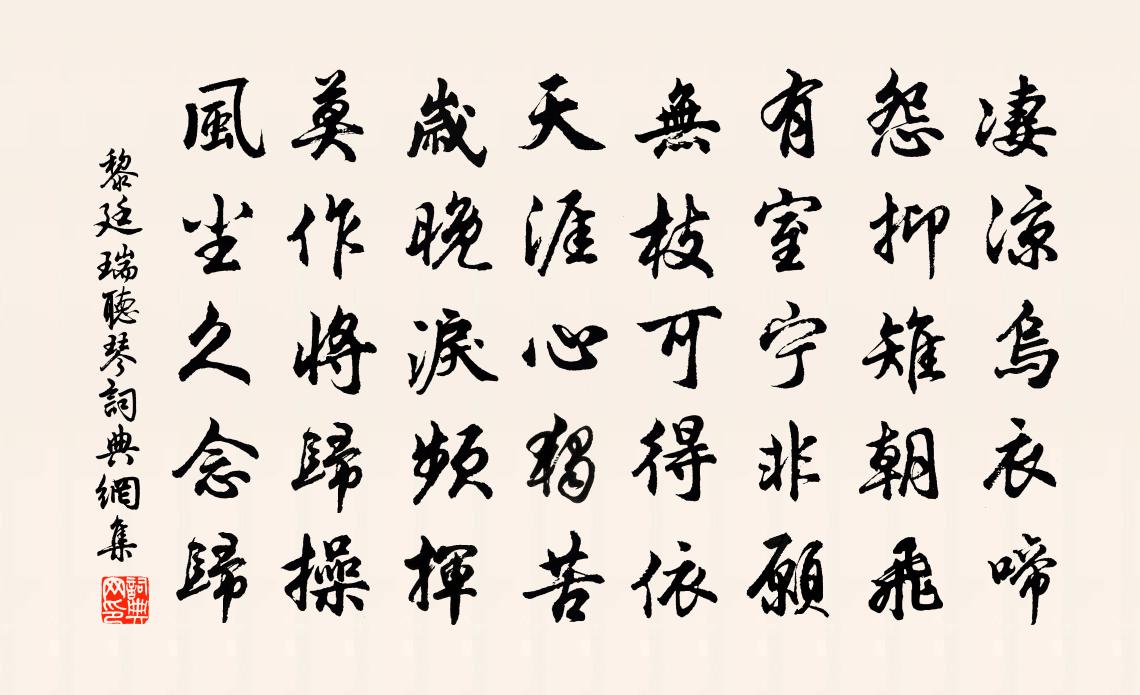 凄涼烏衣啼
怨抑雉朝飛
有室宁非願
無枝可得依
天涯心獨苦
歲晚淚頻揮
莫作將歸操
風尘久念歸
黎廷瑞聽琴詞典網集
詞典网印